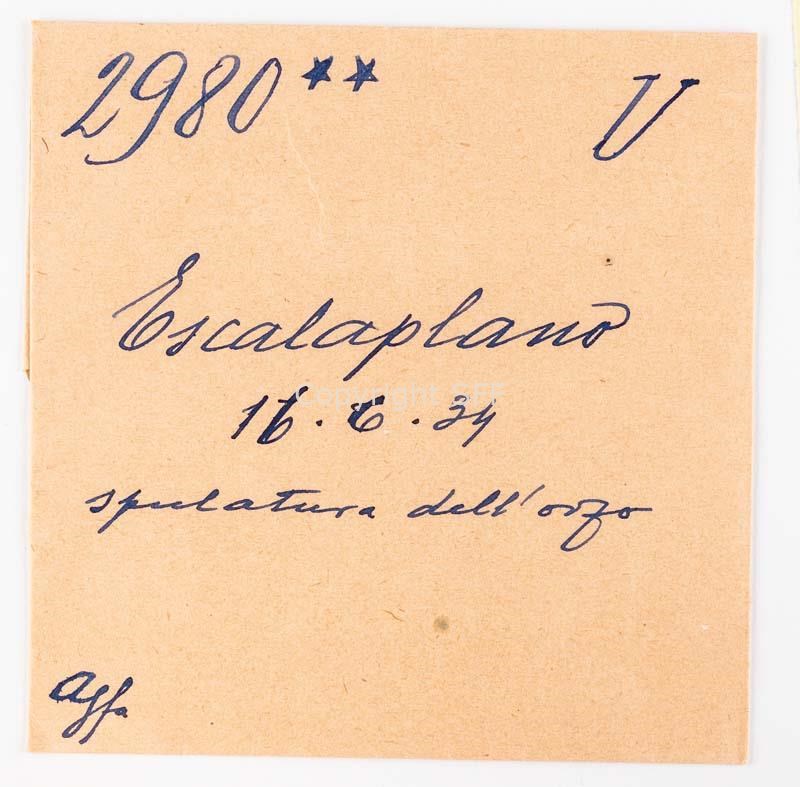 2980** V
Escalaplano
16.6.34
spulatura dell'orzo
Agfa
Copyright SFF